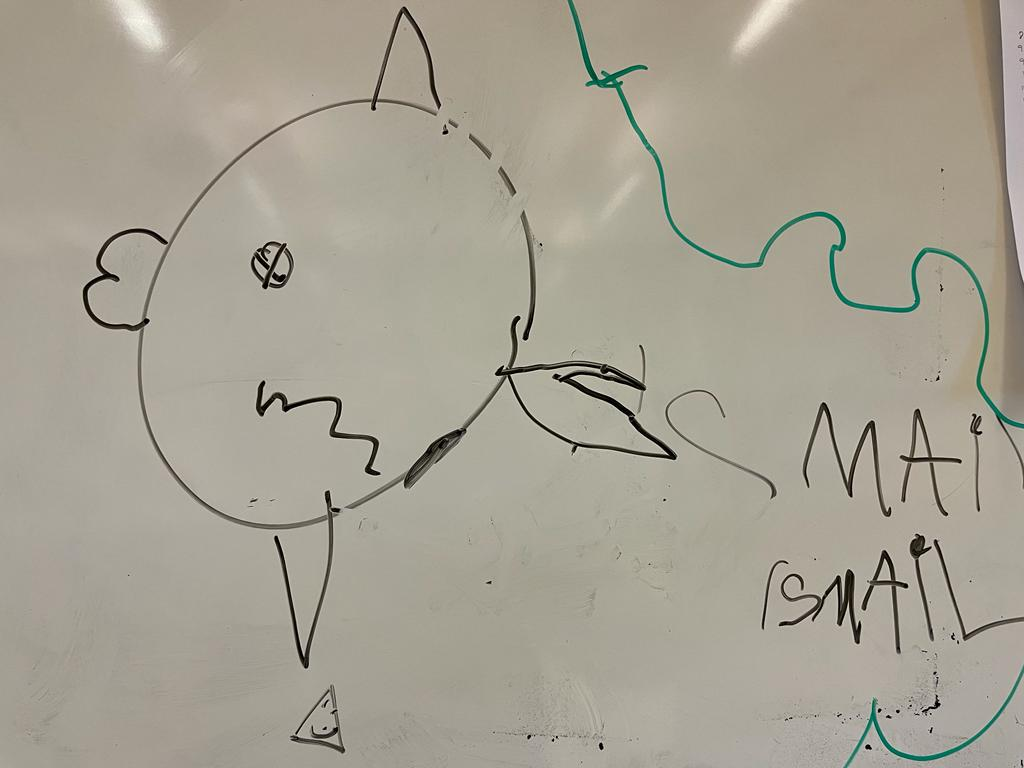 SMAi
ISMAiL